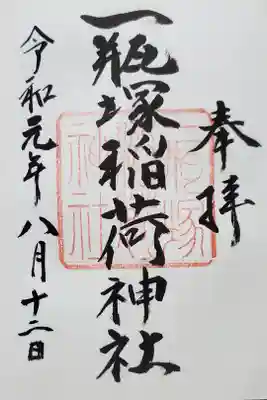 奉拝
一瓶塚稲荷神社
令和元年八月十二日